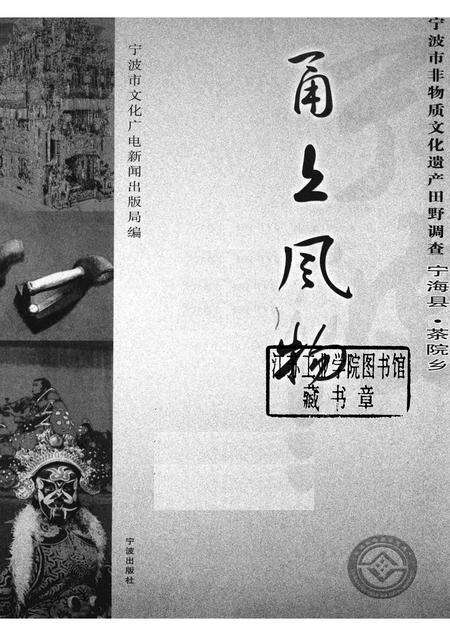 宁波市非物质文化遗产田野调查 宁海县·茶院乡
甬上风物
宁波市文化广电新闻出版局编
江苏工业学院图书馆
藏书章
宁波出版社